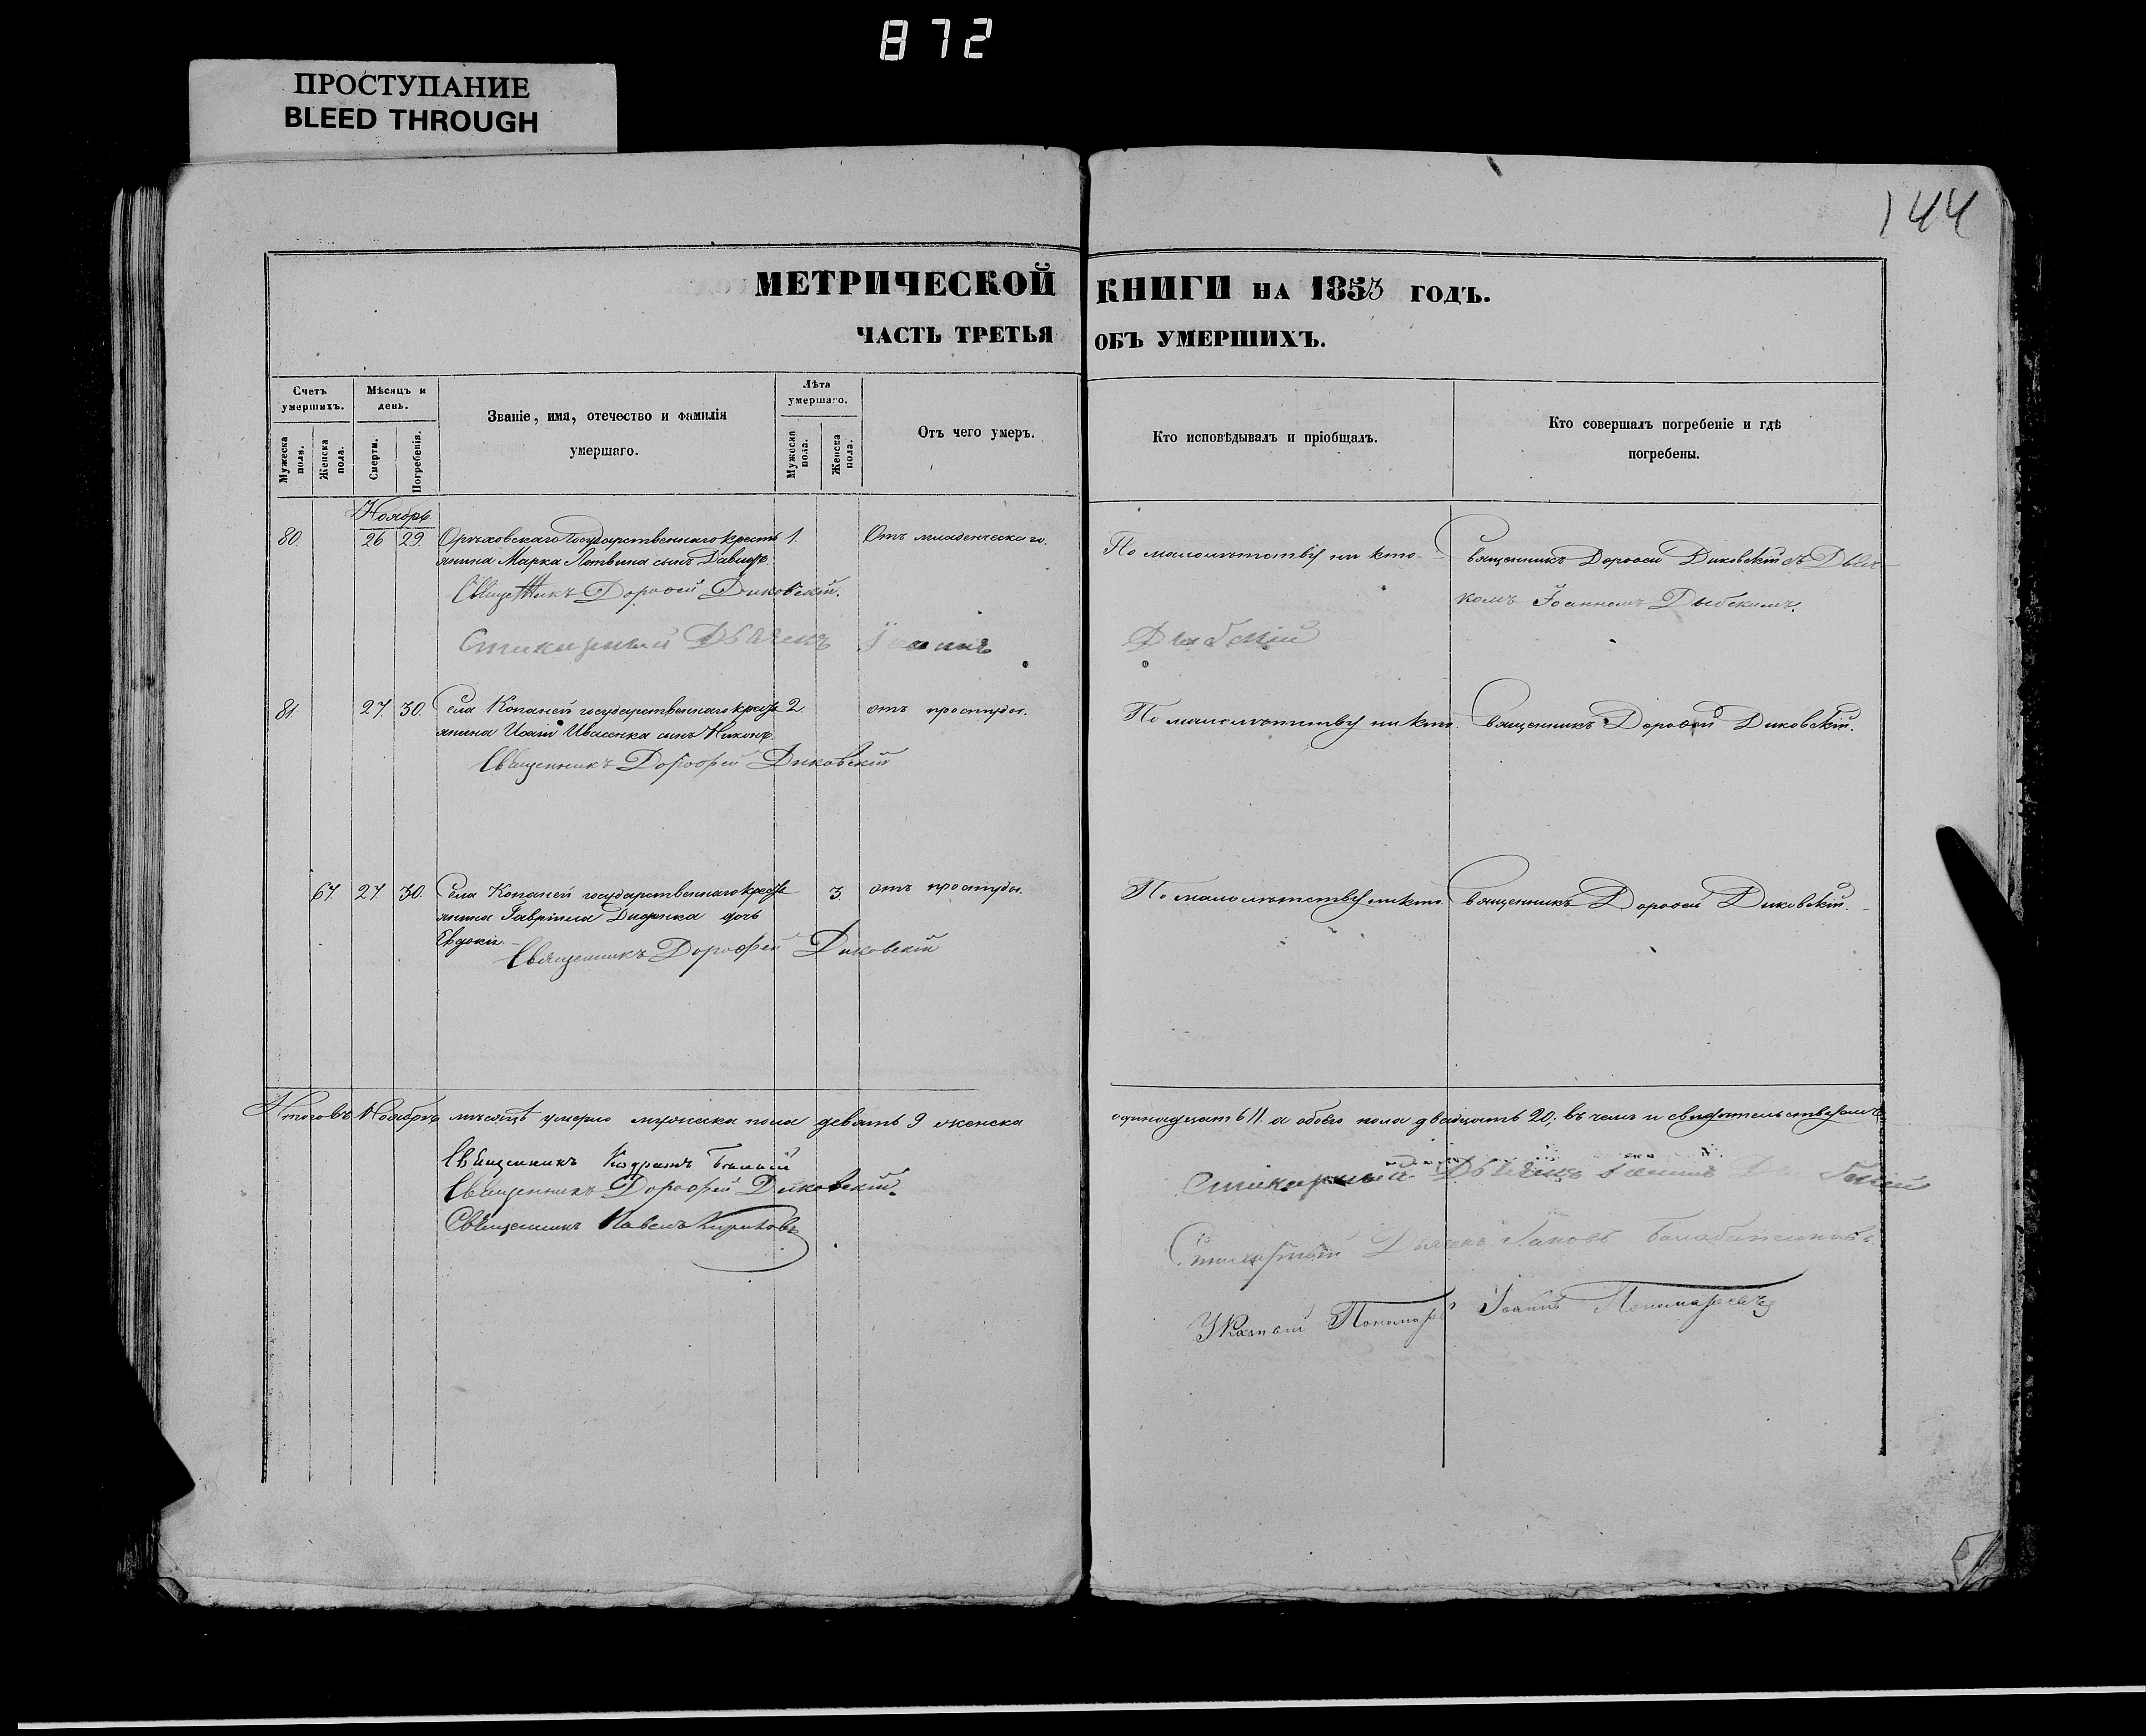 872
ПРОСТУПАНИЕ
BLEED THROUGH
144
МЕТРИЧЕСКОЙ КНИГИ НА 1853 ГОДЪ.
ЧАСТЬ ТРЕТЬЯ ОБЪ УМЕРШИХЪ.
Счетъ умершихъ.
Мужеска пола.
Женска пола.
Мѣсяцъ и день.
Смерти.
Погребенія.
Званіе, имя, отечество и фамилія
умершаго.
Лѣта умершаго.
Мужеска пола.
Женска пола.
Отъ чего умеръ.
Кто исповѣдывалъ и пріобщалъ.
Кто совершалъ погребеніе и гдѣ
погребены.
Ноябрь
80. 26 29 Орѣховскаго государственнаго кресть 1. Отъ младенческаго. По малолѣтству ни кто. Священникъ Дорофей Диковскій съ Дьяч
янина Марка Литвина сынъ Давидъ.
комъ Іоанномъ Дыбскимъ.
Священникъ Дорофей Диковскій.
Стихарный Дьячекъ Іоаннъ Дыбскій
81. 27. 30. Села Копаней государственнаго кресть 2. отъ простуды. По малолѣтству ни кто. Священникъ Дорофей Диковскій.
янина Исаіи Ивасенка сынъ Никонъ.
Священникъ Дорофей Диковскій
67. 27. 30. Села Копаней государственнаго кресть 3. отъ простуды. По малолѣтству ни кто. Священникъ Дорофей Диковскій.
янина Гавріила Диденка дочь
Евдокія.
Священникъ Дорофей Диковскій
Итого въ Ноябрѣ мѣсяцѣ умерло мужеска пола девять 9 женска одинадцать 11. а обоего пола двадцать 20; въ чемъ и свидѣтельствуемъ
Священникъ
Священникъ Дорофей Диковскій.
Священникъ Павелъ Кириловъ
Стихарный Дьячекъ Іоаннъ Дыбскій
Стихарный Дьячекъ Іаковъ
Указный Пономарь Іоаннъ Пономаревъ